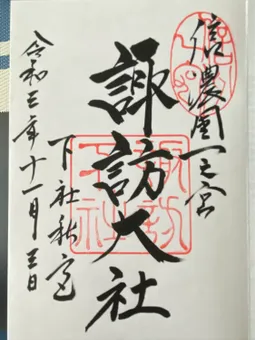 信濃國一之宮
諏訪大社
下社秋宮
令和三年十一月三日